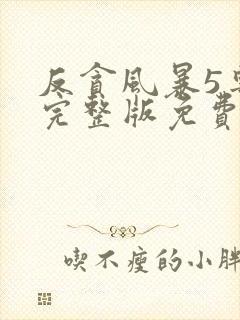 反貪風暴5
完整版免費
喫不瘦的小胖